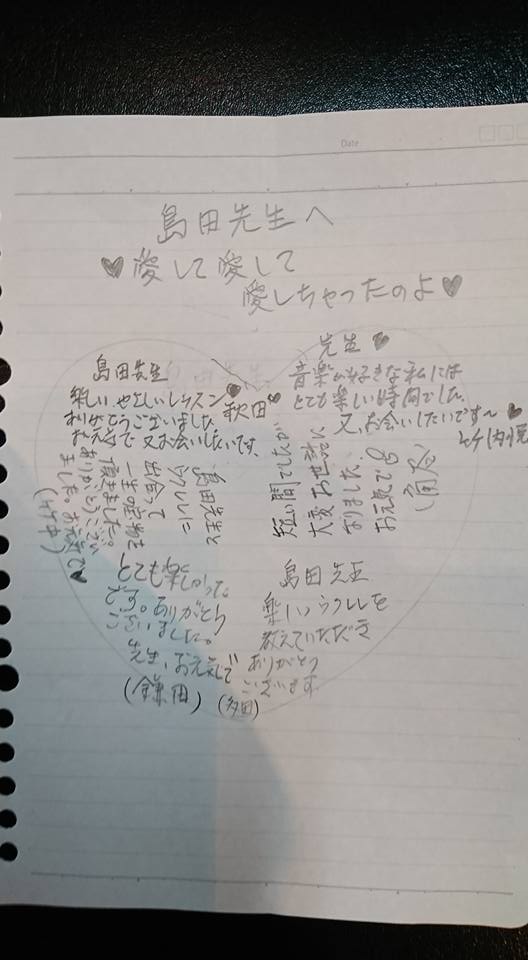 Date
島田先生へ
♥愛して愛して
愛しちゃったのよ♥
島田先生
楽しいやさしいレッスン♥
ありがとうございました。
お元気で又お会いしたいです。
秋田
先生♥
音楽が好きな私には
とても楽しい時間でした。
又、お会いしたいです～♥
島田先生と
ウクレレに
出会って
一生の宝物を
頂きました。
ありがとうござい
ました。お元気で♥
(竹中)
短い間でしたが
大変お世話に
なりました。
お元気で
とても楽しかった。
です。ありがとう
ございました。
先生、お元気で
(鎌田)
島田先生
楽しいウクレレを
教えていただき
ありがとう
ございます
(多田)